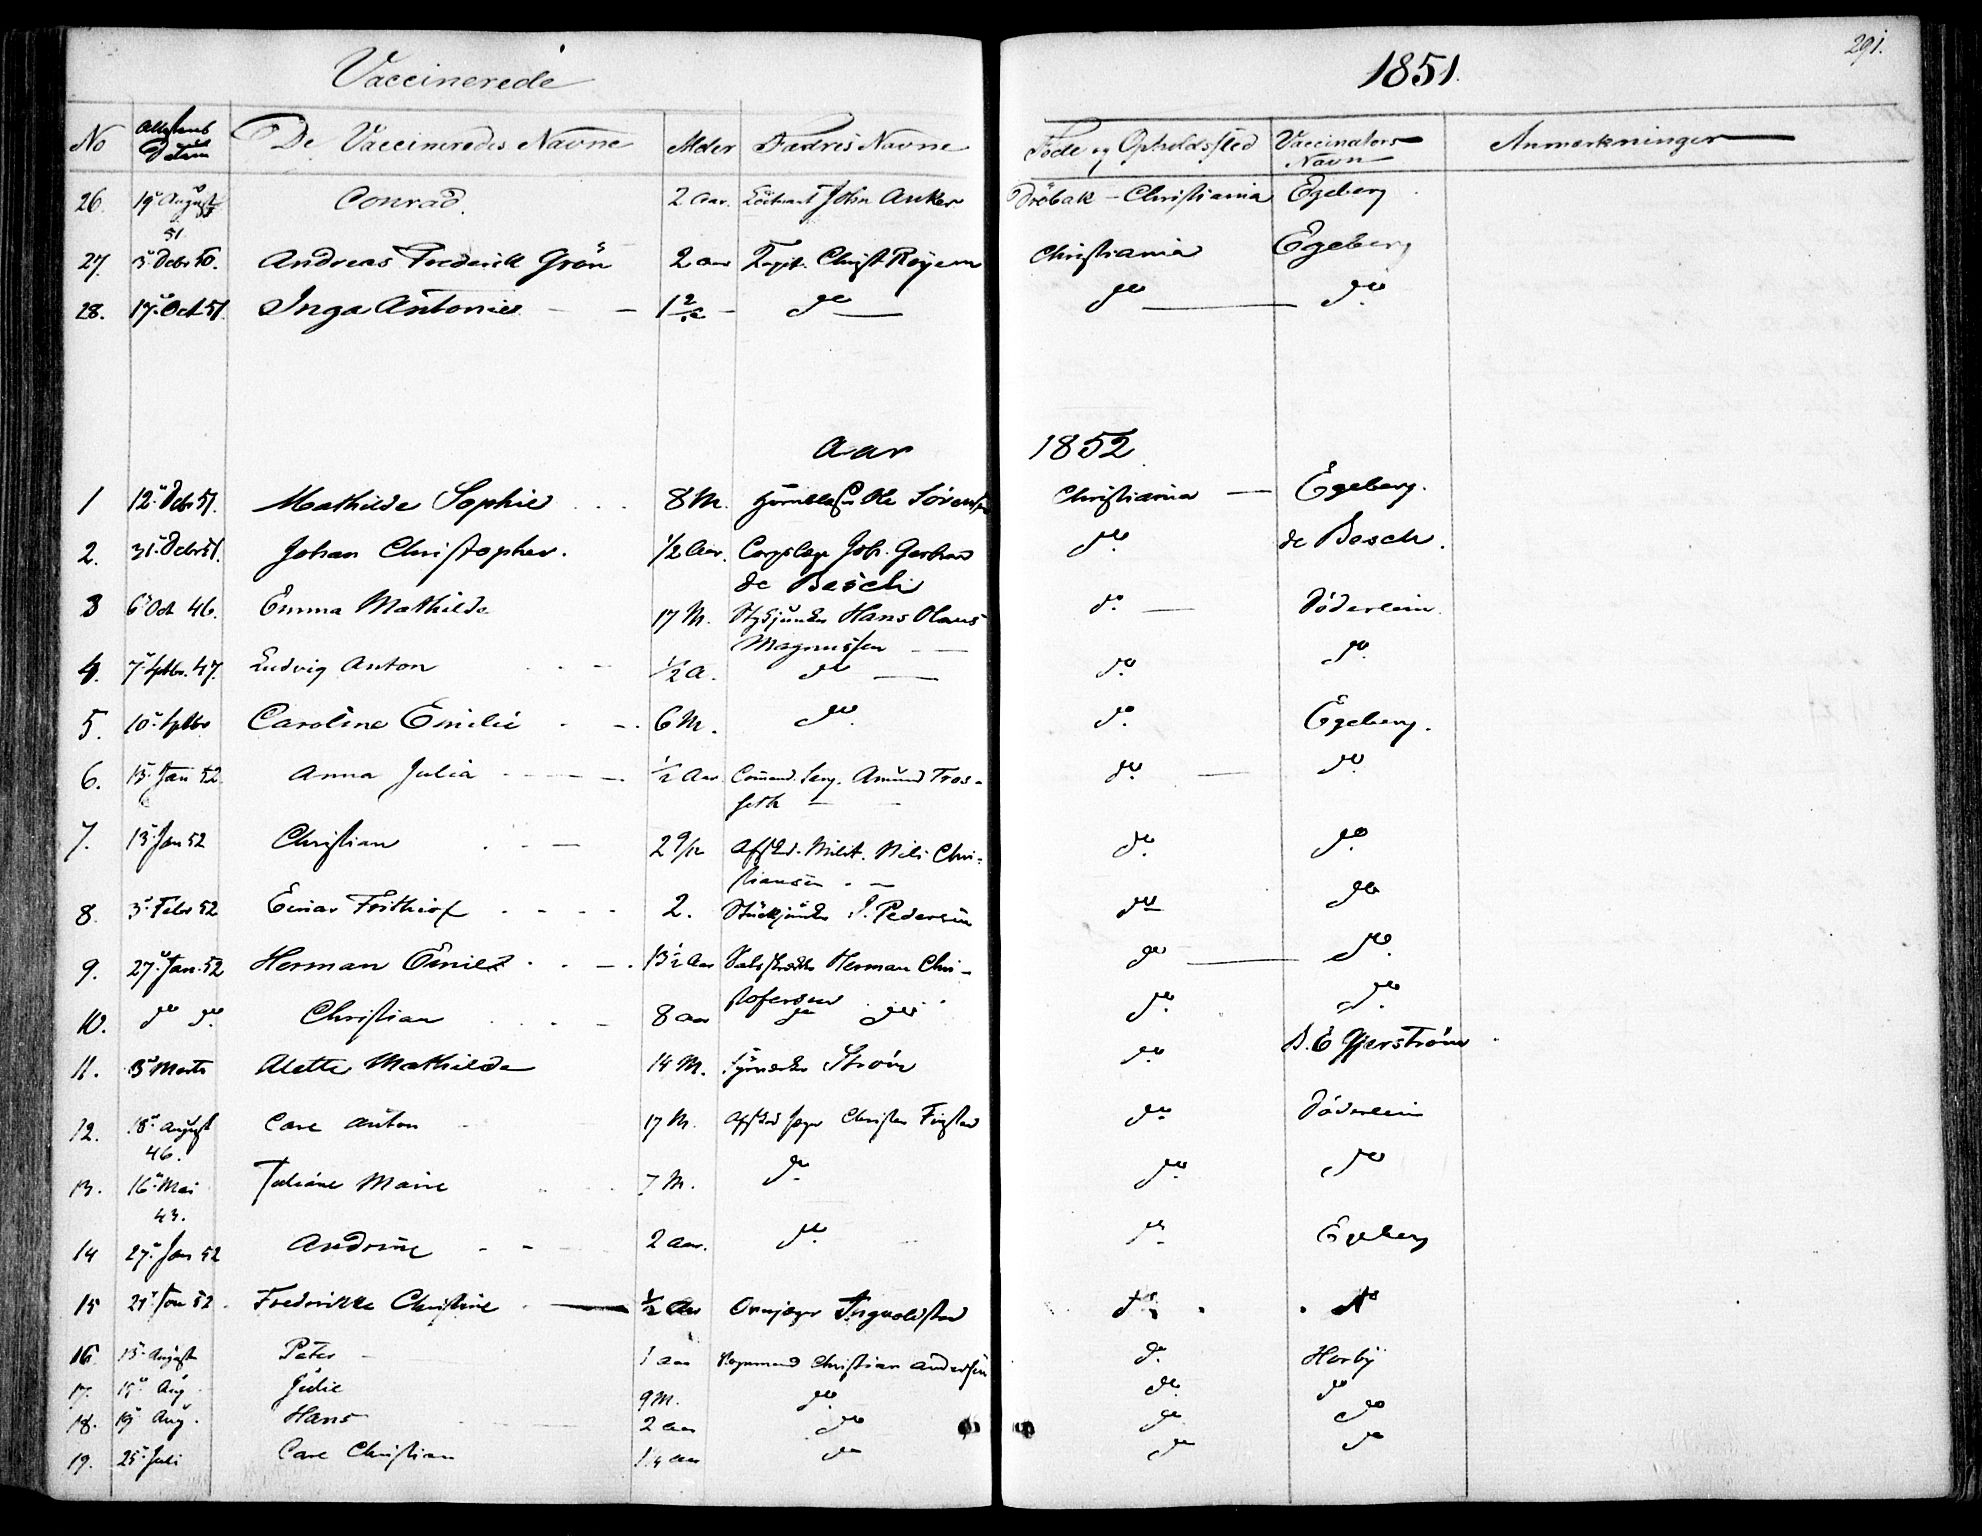 Vaccinerede 1851. 291.
No Attestens Datum De Vaccineredes Navne Alder Fædres Navne Føde og Opholdssted Vaccinators Navn Anmærkninger
26. 19de August 51 Conrad. 2 Aar. Lieutnant John Anker Drøbak - Christiania Egeberg
27. 5 Debr 50. Andreas Frederik Grøn 2 aar Capt. Christ Røyem Christiania Egeberg
28. 17. Oct 51. Inga Antonie - - 1 2/12 - do do do
Aar 1852.
1 12. Debr 51. Mathilde Sophie 8 M. Ole Sørensen Christiania - Egeberg.
2. 31. Debr 51. Johan Christopher. 1/2 Aar. Corpslæge Joh. Gerhard do de Besche.
de Besche
3 6 Oct 46. Emma Mathilde 17 M. Stykjunker Hans Olaus do. - Döderlein.
Magnussen -
4. 7. Septbr. 47. Ludvig Anton 1/2 a. do - do. do.
5. 10. Septbr Caroline Emilie 6 M. do. do. Egeberg.
6. 15. Jan 52. Anna Julia 1/2 Aar Comand. Serg. Amund Tros- do. - do.
seth -
7. 13 Jan 52 Christian 2 9/12 Afsked. Milit. Nils Chri- do. do.
stiansen. -
8. 3. Febr 52 Einar Frithiof 2. Stückjunker J. Pedersen do do
9. 27. Jan. 52 Herman Emil 13 1/2 Aar Herman Chri- do do.
stofersen
10. do do. Christian 8 aar do do do. do.
11. 3 Marts Alette Mathilde 14 M. Strøm do. D. E Gjerstrøm
12. 18. August 46. Carl Anton 17 M. Afsked Jæger Christen Fingstad do Döderlein
13. 16. Mai 43. Juliane Marie 7 M. do. do. do
14 27. Jan 52 Andrine - - 2 aar. do. do Egeberg
15 21. Jan 52. Frederikke Christine 1/2 Aar Ingvoldstad do. do
16. 15. August Peter 1 aar Christian Andersen do. Horby
17. 15. Aug. Julie 9 M. do. do. do
18. 19 Aug. Hans 2 aar do do do
19. 25. Juli Carl Christian 1 1/4 aar do do do